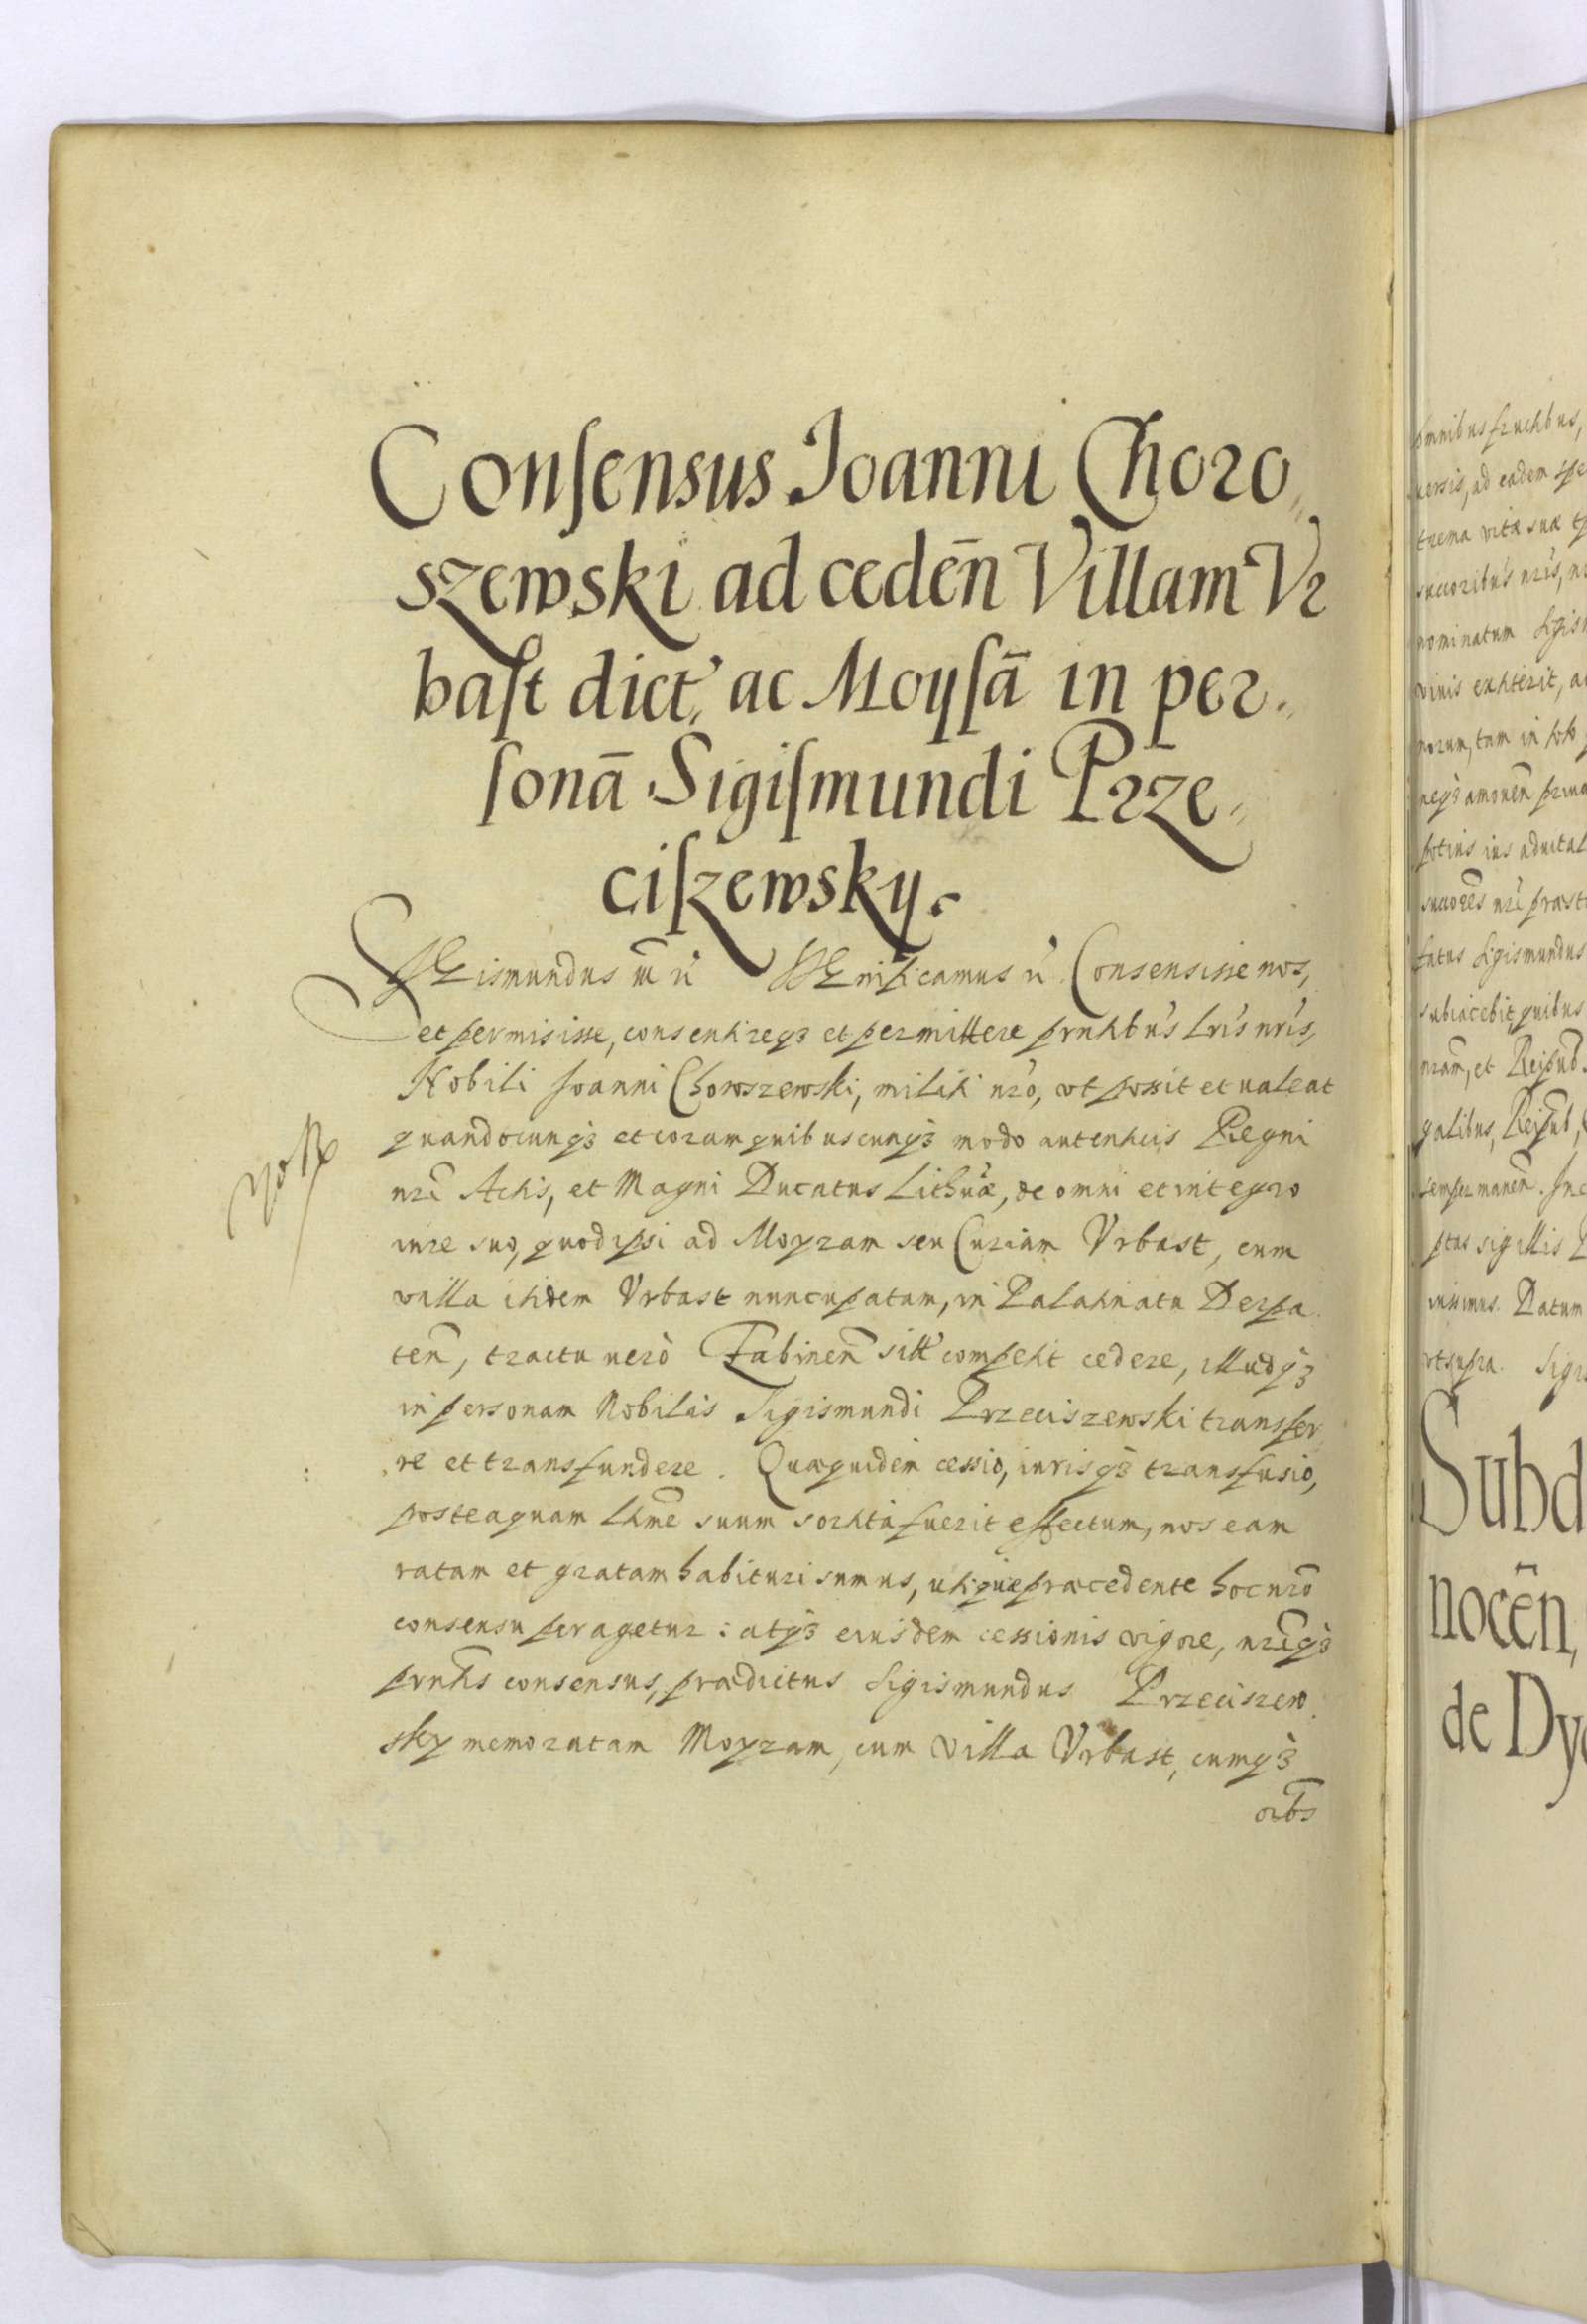 Consensus Joanni Choro„
szewski ad cedeñ Villam Vr
bast dict. ac Moysā in per„
sonā Sigismundi Prze„
ciszewsky.
Sigismundus
Significamus
Consensisse nos,
et permisisse, consentireqз et permittere prntibus lris nris,
Nobili Joanni Choroszewski, militi nro, vt possit et ualeat
quandocunqз et coram quibuscunqз modo autenticis Regni
nri Actis, et Magni Ducatus Lithuæ, de omni et integro
iure suo, quod ipsi ad Moyzam seu Curiam Vrbast, cum
villa itidem Vrbast nuncupatam, in Palatinatu Derpa
teñ, tractu uerò sitt competit cedere, illudqз
in personam Nobilis Sigismundi Przeciszewski transfer
re et transfundere. Quæquidem cessio, iurisqз transfusio,
posteaquam ltme suum sortita fuerit effectum, nos eam
ratam et gratam habituri sumus, præcedente hoc nro
consensu peragetur: atqз eiusdem cessionis vigore, nriqз
prntis consensus, prædictus Sigismundus Przeciszew
sky memoratam Moyzam, cum villa Vrbast, cumqз
oibs
omnibus fructibus,
uersis, ad eadem spe
trema vitæ suæ
succoribus nris,
nominatum Sigis
uiuis extiterit,
norum, tam in toto
neqз amoueñ
potius ius aduital
succores nri præst
fatus Sigismundus
subiacebit quibus
nram, et Reipub.
galibus, Reipub,
semper maneñ. In c
ptas sigillis
iussimus. Datum
vt supra. Sigis
Subd
noceñ,
de Dy